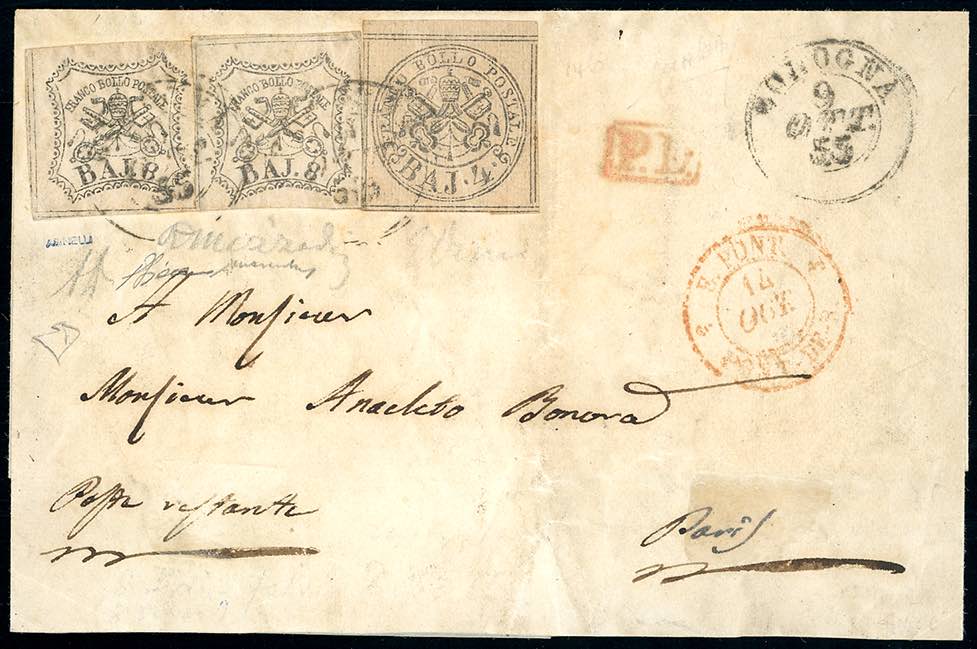 FRANCO BOLLO POSTALE
BAJ. 8
FRANCO BOLLO POSTALE
BAJ. 8
FRANCO BOLLO POSTALE
BAJ. 4.
BOLOGNA
9
OTT.
55
P.D.
E. PONT.
14
OCT
55
A Monsieur
Monsieur Anacleto Bonora
Poste restante
Paris